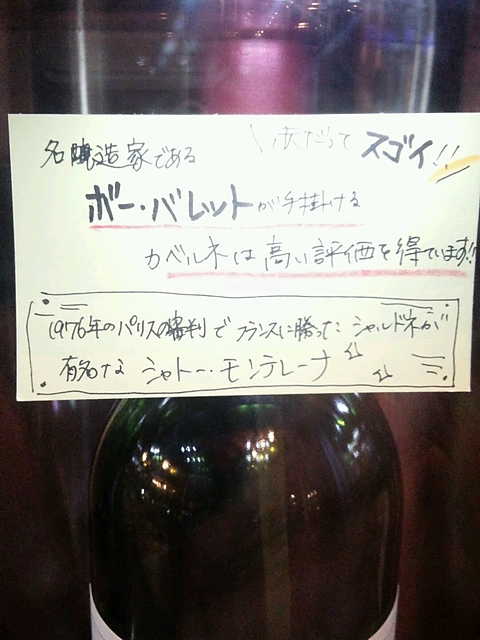 \ 赤だって スゴイ!!
名醸造家である
ボー・バレットが手掛ける
カベルネは高い評価を得ています!!
1976年のパリスの審判でフランスに勝ったシャルドネが
有名なシャトー・モンテレーナ